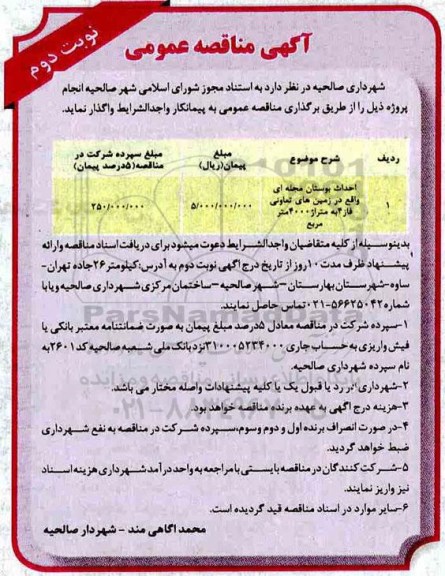 نوبت دوم
آگهی مناقصه عمومی
شهرداری صالحیه در نظر دارد به استناد مجوز شورای اسلامی شهر صالحیه انجام
پروژه ذیل را از طریق برگذاری مناقصه عمومی به پیمانکار واجدالشرایط واگذار نماید.
ردیف شرح موضوع مبلغ پیمان(ریال) مبلغ سپرده شرکت در مناقصه(۵درصد پیمان)
۱ احداث بوستان محله ای واقع در زمین های تعاونی فاز۴به متراژ۴۰۰۰متر مربع ۵/۰۰۰/۰۰۰/۰۰۰ ۲۵۰/۰۰۰/۰۰۰
بدینوسیله از کلیه متقاضیان واجدالشرایط دعوت میشود برای دریافت اسناد مناقصه وارائه
پیشنهاد ظرف مدت ۱۰روز از تاریخ درج آگهی نوبت دوم به آدرس:کیلومتر۲۶جاده تهران-
ساوه-شهرستان بهارستان -شهر صالحیه -ساختمان مرکزی شهرداری صالحیه ویا با
شماره ۵۶۶۲۵۰۴۲-۰۲۱تماس حاصل نمایند.
۱-سپرده شرکت در مناقصه معادل ۵درصد مبلغ پیمان به صورت ضمانتنامه معتبر بانکی یا
فیش واریزی به حساب جاری ۳۱۰۰۰۵۲۳۴۰۰۰نزد بانک ملی شعبه صالحیه کد ۲۶۰۱به
نام سپرده شهرداری صالحیه.
۲-شهرداری در رد یا قبول یک یا کلیه پیشنهادات واصله مختار می باشد.
۳-هزینه درج آگهی به عهده برنده مناقصه خواهد بود.
۴-در صورت انصراف برنده اول و دوم وسوم،سپرده شرکت در مناقصه به نفع شهرداری
ضبط خواهد گردید.
۵-شرکت کنندگان در مناقصه بایستی با مراجعه به واحد درآمد شهرداری هزینه اسناد
نیز واریز نمایند.
۶-سایر موارد در اسناد مناقصه قید گردیده است.
محمد اگاهی مند - شهردار صالحیه
ParsNamadData